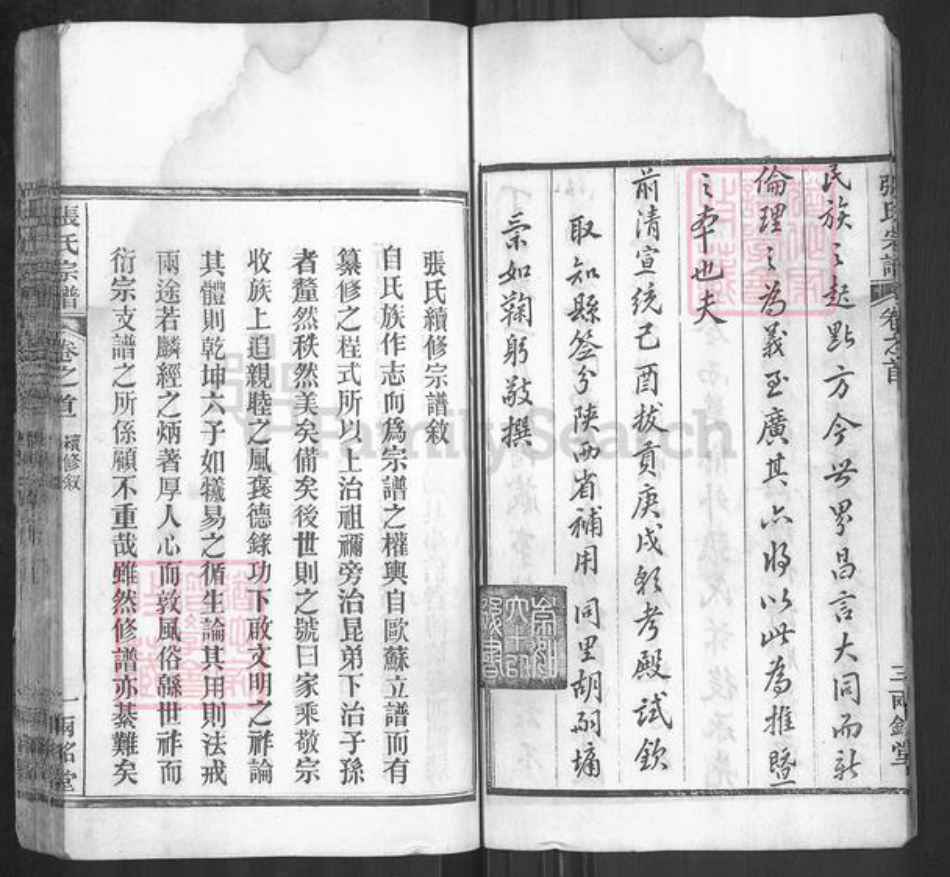 張氏宗譜 卷之首 三 兩銘堂
民族之起點方今世界昌言大同而於
倫理之為義至廣其亦將以此為推暨
之本也夫
前清宣統己酉拔貢庚戌朝考殿試欽
取知縣簽分陝西省補用 同里胡嗣墉
榮如鞠躬敬撰
張氏續修宗譜敘
自氏族作志而為宗譜之權輿自歐蘇立譜而有
纂修之程式所以上治祖禰旁治昆弟下治子孫
者釐然秩然美矣備矣後世則之號曰家乘敬宗
收族上追親睦之風褒德錄功下啟文明之祚論
其體則乾坤六子如犧易之循生論其用則法戒
兩途若麟經之炳著厚人心而敦風俗縣世祚而
衍宗支譜之所係顧不重哉雖然修譜亦綦難矣
張氏宗譜 卷之首 續修敘 一 兩銘堂
FamilySearch